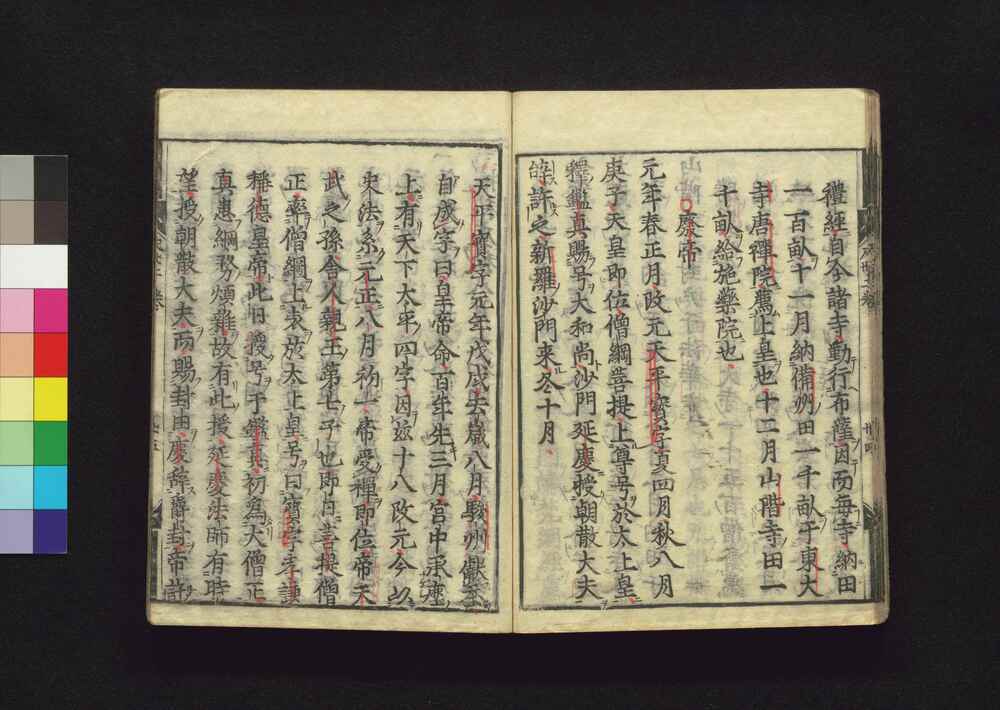 禮經自今諸寺勤行布薩因而每寺納田
一百畝十一月納備州田一千畝于東大
寺唐禪院薦上皇也十二月山階寺田一
十畝給施藥院也
○廢帝
元年春正月改元天平寶字夏四月秋八月
庚子天皇即位僧綱菩提上尊号於太上皇
釋鑑真賜号大和尚沙門延慶授朝散大夫
辞許之新羅沙門来冬十月
天平寶字元年戊戌去歲八月駿州獻蚕
自成字曰皇帝命百年先三月宮中承塵
上有天下太平四字因茲十八改元今以
史法系元正八月初一帝受禪即位帝天
武之孫舍人親王第七子也即日菩提僧
正率僧綱上表於太上皇号曰寶字孝謙
稱德皇帝此日授号于鑑真初為大僧正
真患綱務煩雜故有此授延慶法師有時
望授朝散大夫而賜封田慶辞爵封帝許